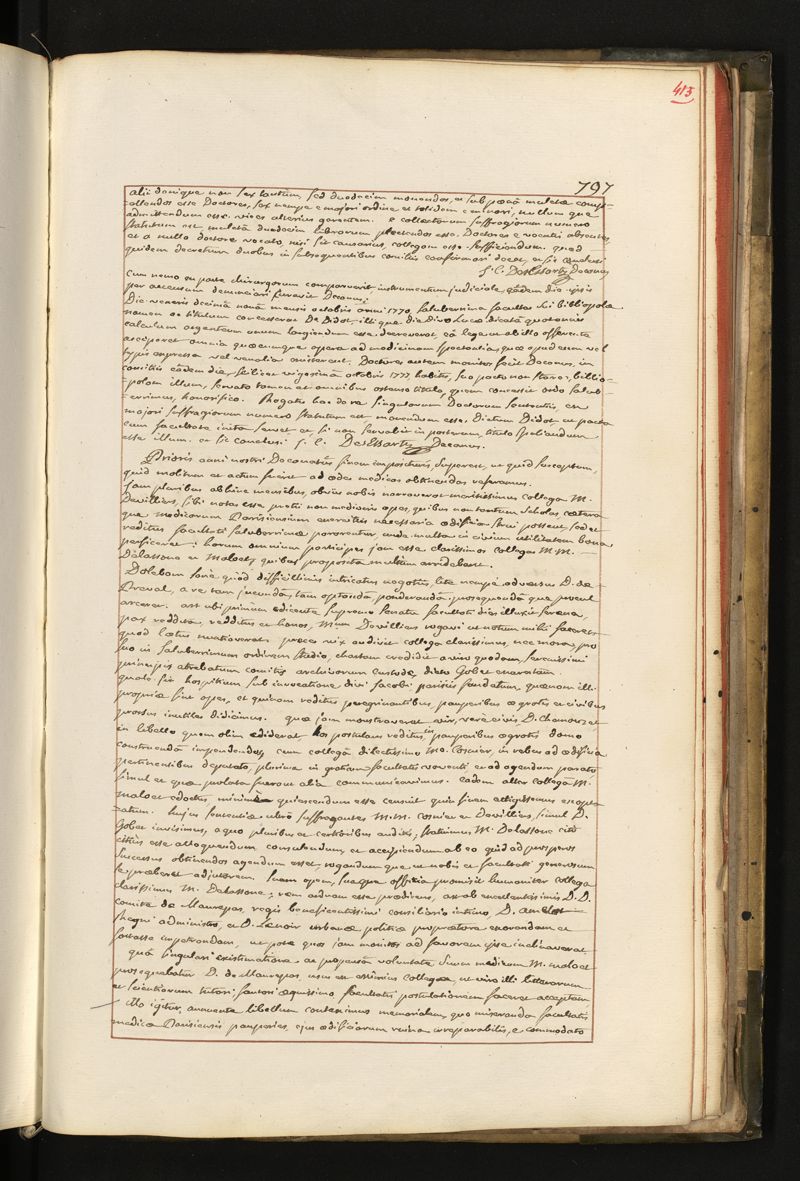 413
797
alii denique non sex tantum, sed duodecim monendos, et sub poenâ mulctae comp-
ellendos esse Doctores, sex nempe e majori ordine et totidem e minori, nullum que
admittendum esse vices alterius gerentem. e collectorum suffragiorum numero
statutum est mulctâ duodecim librarum plectendos esse Doctores e vocatis absentes,
et a nullo doctore vocato, nisi sit causarius, collegam esse sufficiendum. quod
quidem decretum duobus in subsequentibus comitiis confirmari decet, et sic conclusi
J. C. DesEssartz Decanus
Cum nemo ex parte chirurgorum comparuerit instrumentum judiciale, eâdem die ipsis
per accensum denunciari curavit Decanus;
Die veneris decimâ nonâ mensis octobris anni 1770 saluberrima facultas sui bibliopolae
nomen ac titulum concesserat De Didot, illi que die Divo Lucae dicatâ quotannis
calculum argenteum unum largiendum esse decreverat eâ lege ut ab illo offerente
acciperet omnia quaecunque opera ad medicinam spectantia, quae apud eum vel
typis expressa vel venalia existerent. Doctores autem monitos fecit Decanus, in
comitiis eâdem die, scilicet vigesimâ octobris 1777 habitis, suo pacto non stare, biblio-
polam illum, servato tamen et omnibus ostenso titulo, quem concessit ordo salub-
errimus, honorifico. Rogatis hac de re singulorum Doctorum sententiis, ex
majori suffragiorum numero statutum est monendum esse Dictum Didot ut pacta
cum facultate inita servet et si non servabit in posterum, titulo spoliandum
esse illum. et sic conclusi J. C. DesEssartz Decanus.
Prioris anni nostri Decanatûs finem imposituris, superest, ut quid susceptum,
quid molitum et actum fuerit ad aedes medicas obtinendas referamus.
Jam pluribus abhinc mensibus, obvius nobis narraverat meritissimus collega M.
Devilliers, sibi notas esse pretii non mediocris opes, quibus non tantum scholae, caetera
que medicorum Parisiensium exercitiis necessaria aedificia strui possent, sed et
reditus facultati saluberrimae pararentur, unde multa in civium utilitatem bona
perficeret; horum omnium participes jam esse clarissimos collegas M.M.
Delassone et Maloet, quibus proposita multum arridebant.
Dolebam sanè quòd difficillimis intricatus negotiis, lite nempè adversus D. de
Preval, a re tam jucundâ, tam optandâ, ponderandâ, prosequendâ que procul
arcerer. ast ubi primùm edicente supremo senatu facultati dies illuxit serena,
pax reddita, redditus et honos, Mum Devilliers rogavi ut notum mihi faceret
quod laetus nuntiaverat. preces vix audivit collega clarissimus, nec mora, pro
suo in saluberrimum ordinem studio, chartam credidit a viro quodam, serenissimi
principis atrebatum comitis archivorum custode, dicto Gobet exaratam.
quale sit hospitium sub invocatione divi Jacobi parisiis fundatum, quaenam illi
propriae sint opes, et quinam reditus peregrinantibus, pauperibus aegrotis et civibus
prorsus inutiles didicimus. quae jam monstraverat vir, verè civis D. Chamousset
in libello quem olim ediderat hos postulans reditus, in pauperibus aegrotis domo
construendâ impendendos, cum collegâ dilectissimo Mo. Cosnier, in rebus ad aedificia
pertinentibus deputato, plurima in gratiam facultatis voventi et ad agendum parato
simul et quae prolata fuerant alia communicavimus. eadem alter collega M.
maloet edoctus, minimè quiescendum esse censuit quin finem attigissemus exopta-
-tum. hujus sententiae ultrò suffragantes M.M. Cosnier et Devilliers, simul D.
Gobet invisimus, a quo pluribus et certioribus auditis, statuimus M. Delassone citò
citiùs esse alloquendum consulendum, et accipiendum ab eo quid ad prosperos
successus obtinendos agendum esset, rogandum que ut nobis et facultati generosum
se praeberet adjutorem. suam opem, sua que officia promisit humaniter collega
clarissimus M. Delassone; rem arduam esse praedicens, ast ab excellentissimis D.D.
comite de Maurepas, regis beneficentissimi consiliario intimo, D. amelot
regni administris, et D. Lenoir urbanae politiae propraetore exorandam et
fortasse impetrandam, ut pote quos jam monitos ad favorem ipse inclinaverat.
quâ singulari existimatione ac propensâ voluntate suum medicum M. maloet
prosequebatur D. de Maurepas, usus est eximius Collega, ut viro illi litterarum
et scientiarum tutori, fautori aequissimo facultatis postulationem faceret acceptam.
illo igitur, annuente libellum conteximus memorialem, quo miseranda facultatis
medicae Parisiensis pauperies, ejus aedificiorum ruina irreparabilis, e commodato